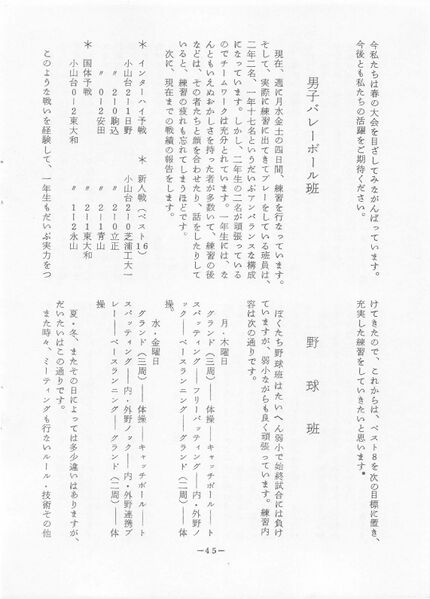 今私たちは春の大会を目ざしてみながんばっています。
今後とも私たちの活躍をご期待ください。
男子バレーボール班
現在、週に月水金土の四日間、練習を行なっています。
そして、実際に練習に出てきてプレーをしている班員は、
二年二名、一年十七名というだいぶアンバランスな構成
になっています。しかし、二年生の二名が頑張っている
のでチームワークは充分とれています。一年生には、な
んともいえぬおかしさを持った者が多数いて、練習の後
などは、その者たちと顔を合わせたり、話をしたりして
いると、練習の疲れも忘れてしまうほどです。
次に、現在までの戦績の報告をします。
＊ インターハイ予戦
小山台2-1日野
〃 2-0駒込
〃 0-2安田
＊ 国体予戦
小山台0-2東大和
＊ 新人戦（ベスト16）
小山台2-0芝浦工大一
〃 2-0立正
〃 2-1青山
〃 2-1東大和
〃 1-2永山
このような戦いを経験して、一年生もだいぶ実力をつ
けてきたので、これからは、ベスト8を次の目標に置き、
充実した練習をしていきたいと思います。
野球班
ぼくたち野球班はたいへん弱小で始終試合には負け
ていますが、弱小ながらも良く頑張っています。練習内
容は次の通りです。
月・木曜日
グランド（三周）──体操──キャッチボール──ト
スバッティング──フリーバッティング──内・外野ノ
ック──ベースランニング──グランド（二周）──体
操。
水・金曜日
グランド（三周）──体操──キャッチボール──ト
スバッティング──内・外野ノック──内・外野連携プ
レー──ベースランニング──グランド（二周）──体
操
夏・冬、またその日によっては多少違いはありますが、
だいたいはこの通りです。
また時々、ミーティングも行ないルール・技術その他
—45—